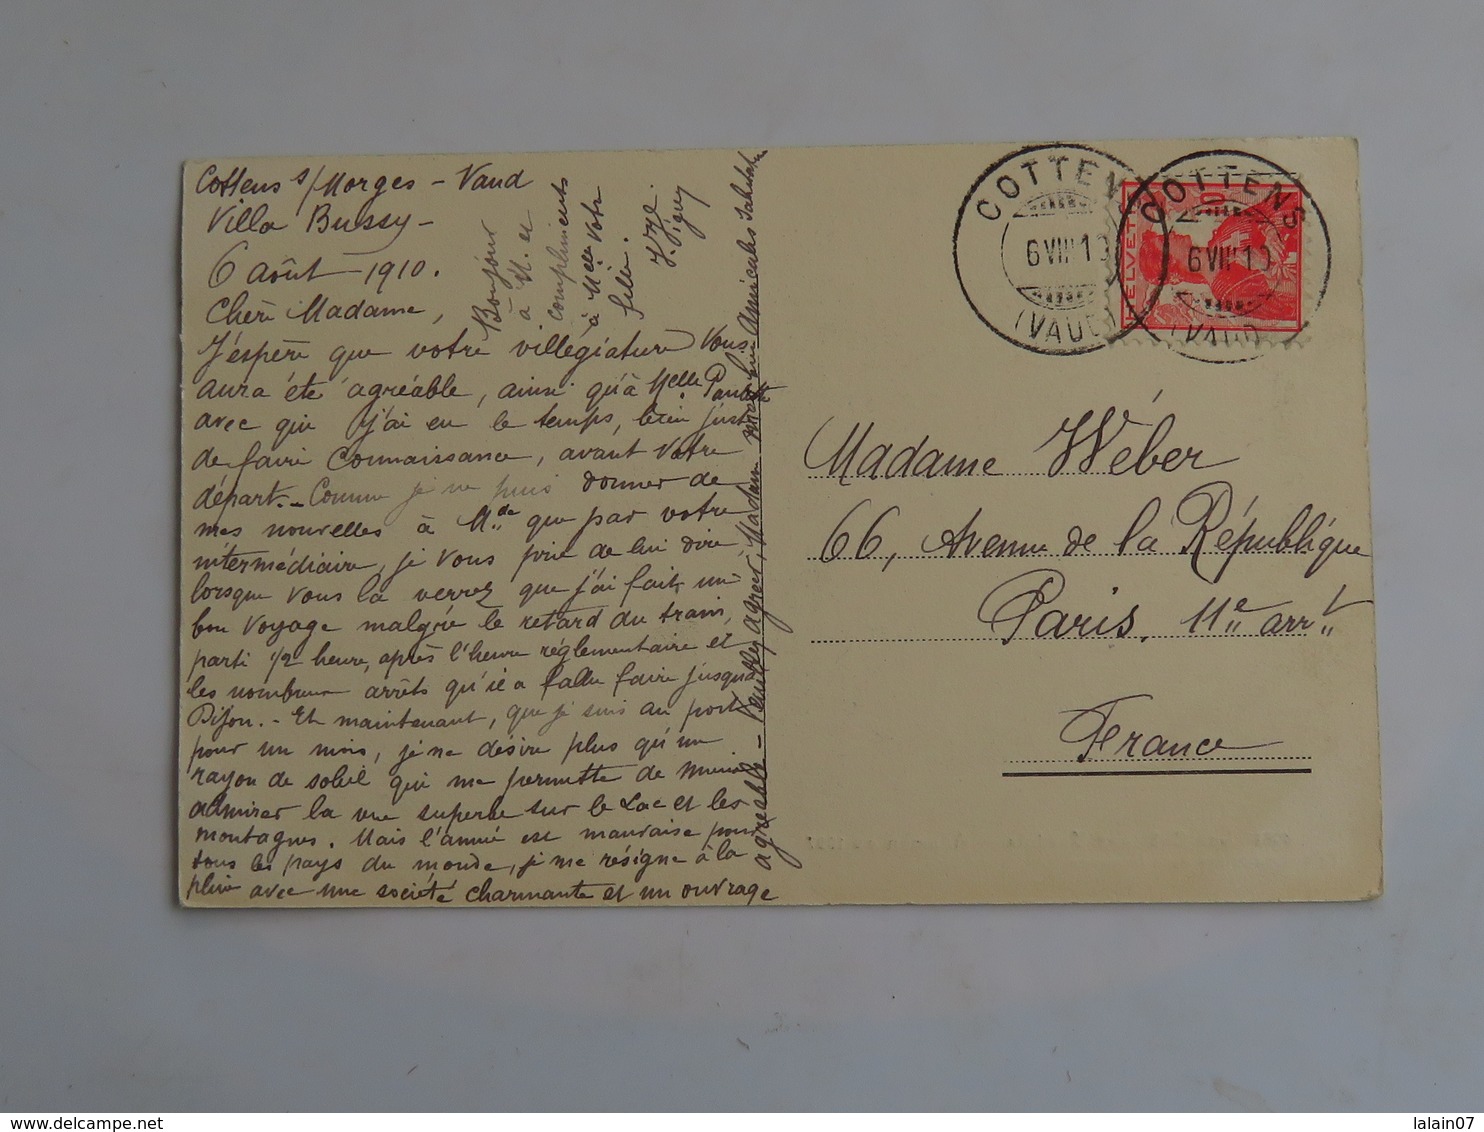 Cottens s/Morges - Vaud
Villa Bussy -
6 août 1910.
Chère Madame,
J'espère que votre villégiature vous
aura été agréable, ainsi qu'à Melle Paulette
avec qui j'ai eu le temps, bien juste
de faire connaissance, avant votre
départ. - Comme je ne puis donner de
mes nouvelles à Mde que par votre
intermédiaire, je vous prie de lui dire,
lorsque vous la verrez que j'ai fait un
bon voyage malgré le retard du train,
parti 1/2 heure, après l'heure réglementaire et
les nombreux arrêts qu'il a fallu faire jusqu'à
Dijon. - Et maintenant, que je suis au port
pour un mois, je ne désire plus qu'un
rayon de soleil qui me permette de mieux
admirer la vue superbe sur le Lac et les
montagnes. Mais l'année est mauvaise pour
tous les pays du monde, je me résigne à la
pluie avec une société charmante et un ouvrage
agréable - Veuillez agréer, Madame, mes bien amicales salutations
Bonjour
à M. et
compliments
à Melle Votre
fille.
COTTENS
6 VIII 10
(VAUD)
COTTENS
6 VIII 10
(VAUD)
HELVETIA
10
Madame Wéber
66, Avenue de la République
Paris, 11e arrt
France
delcampe.net
lalain07